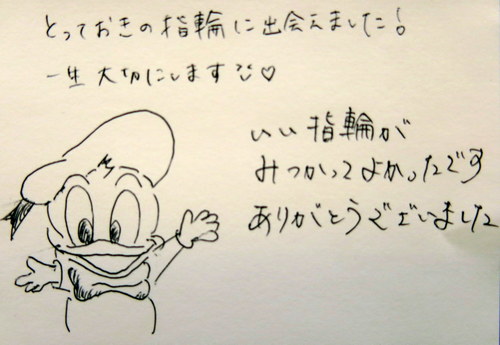 とっておきの指輪に出会えました!
一生大切にします♡
いい指輪が
みつかってよかったです
ありがとうございました